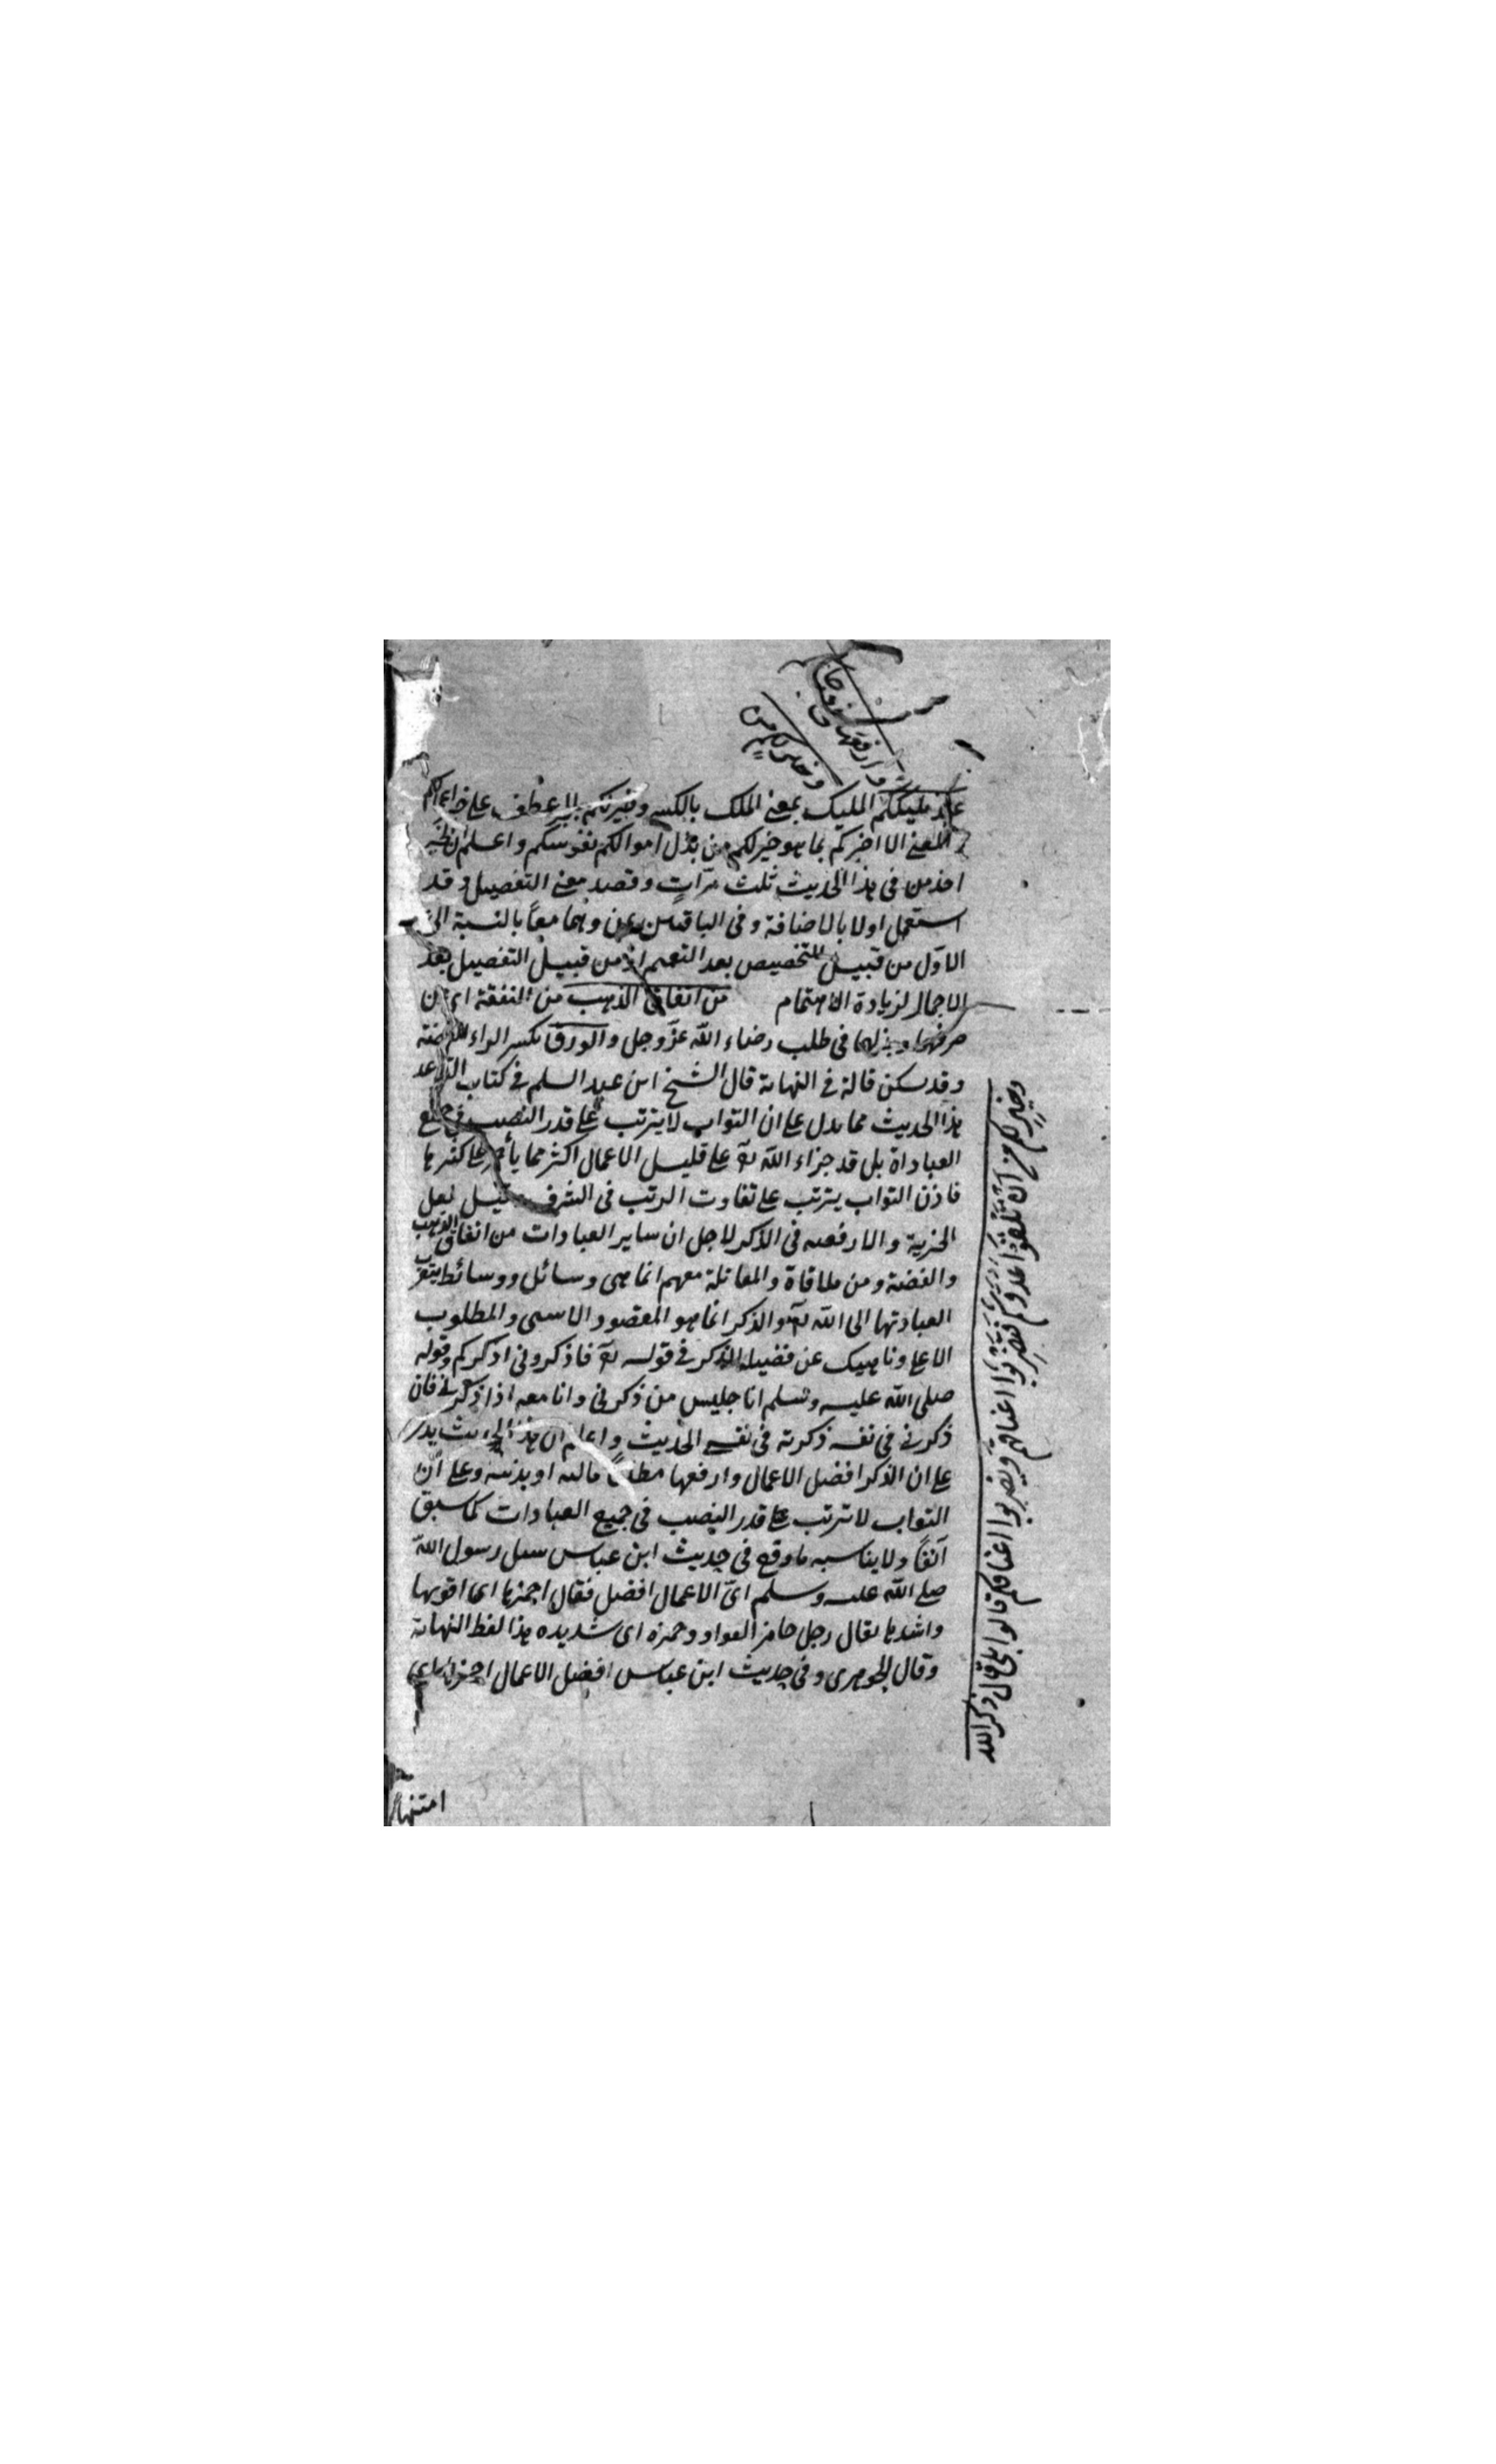 وارفعها في درجا
وخير لكم من
عند مليككم المليك بمعنى الملك بالكسر وخير لكم بالجر عطف على خير اعمالكم
والمعنى الا اخبركم بما هو خير لكم من بذل اموالكم نفوسكم واعلم ان خير
في هذا الحديث ثلث مرّات وقصد معنى التفصيل وقد
استعمل اولا بالاضافة وفي الباقيين بمن وهما معاً بالنسبة الى
الاوّل من قبيل التخصيص بعد التعميم او من قبيل التفصيل بعد
الاجمال لزيادة الاهتمام من انفاق الذهب من النفقة اى من
صرفها وبذلها في طلب رضاء الله عزّ وجل والورق بكسر الراء الفضة
وقد يسكن قاله في النهاية قال الشيخ ابن عبد السلم في كتاب القواعد
هذا الحديث مما يدل على ان الثواب لا يترتب على قدر النصب في جميع
العباداة بل قد جزاء الله تع على قليل الاعمال اكثر مما يأجر على كثيرها
فاذن الثواب يترتب على تفاوت الرتب في الشرف قيل لعل
الخيرية والارفعية في الذكر لاجل ان ساير العبادات من انفاق الذهب
والفضة ومن ملاقاة والمقاتلة معهم انما هى وسائل ووسائط يتقرب
العباد بها الى الله تع والذكر انما هو المقصود الاسمى والمطلوب
الاعلى وناهيك عن فضيلة الذكر في قوله تع فاذكروني اذكركم وقوله
صلى الله عليه وسلم انا جليس من ذكرني وانا معه اذا ذكرني فان
ذكرني في نفسه ذكرته في نفسى الحديث واعلم ان هذا الحديث يدل
على ان الذكر افضل الاعمال وارفعها مطلقاً مالية او بدنية وعلى انّ
الثواب لا يترتب على قدر النصب في جميع العبادات كما سبق
آنفاً ولا يناسبه ما وقع في حديث ابن عباس سئل رسول الله
صلى الله عليه وسلم اىّ الاعمال افضل فقال احمزها اى اقويها
واشدها يقال رجل حامز الفواد وحمزه اى شديده هذا لفظ النهاية
وقال الجوهرى وفي حديث ابن عباس افضل الاعمال احمزها اى
امتنها
وخير لكم من ان تلقوا عدوكم فتضربوا اعناقهم ويضربوا اعناقكم قالوا بلى قال ذكر الله